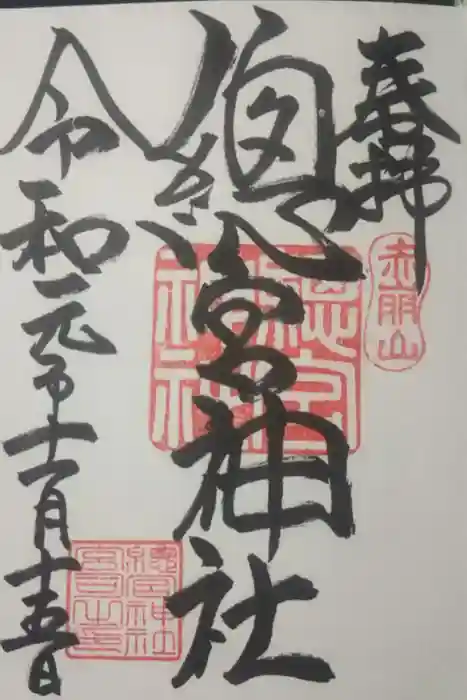 奉拝
赤朋山
總宮神社
總宮
神社
令和元年十一月十五日
總宮神社
宮司之印